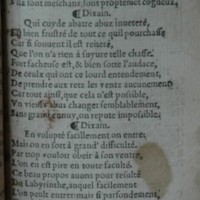 A la sont meschans, sont propre
Dizain.
Qui cuyde abatre abuz inueteré,
Est bien frustré de tout ce quil pourchasse
Car si souuent il est reiteré,
Que l'on n'a rien à suyure telle chasse.
Fort facheuse est, & bien sotte l'audace,
De ceulx qui ont ce lourd entendement,
De prendre aux retz les ventz aucunement
Car tout ainsi, que cela n'est possible,
Vn vieux abus changer semblablement,
Sans grand ennuy, on repute impossible.
Dizain.
En volupté facilement on entre:
Mais on en sort à grand' difficulté.
Par trop vouloir obeir à son ventre,
L'on en est pire en toute faculté.
Ce beau propos auons pour resulté
Du Labyrinthe, auquel facilement
L'on peult entrer: mais si parfondement,